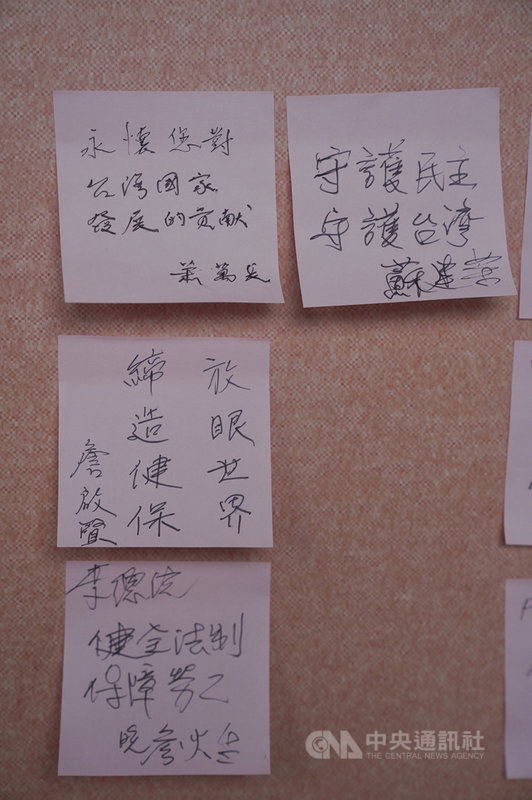 永懷您對
台湾國家
發展的贡献
萧萬長
守護民主
守護台湾
蘇建榮
放眼世界
締造健保
詹啟賢
李總統
健全法制
保障勞工
晚詹火生
CNA 中央通訊社
THE CENTRAL NEWS AGENCY